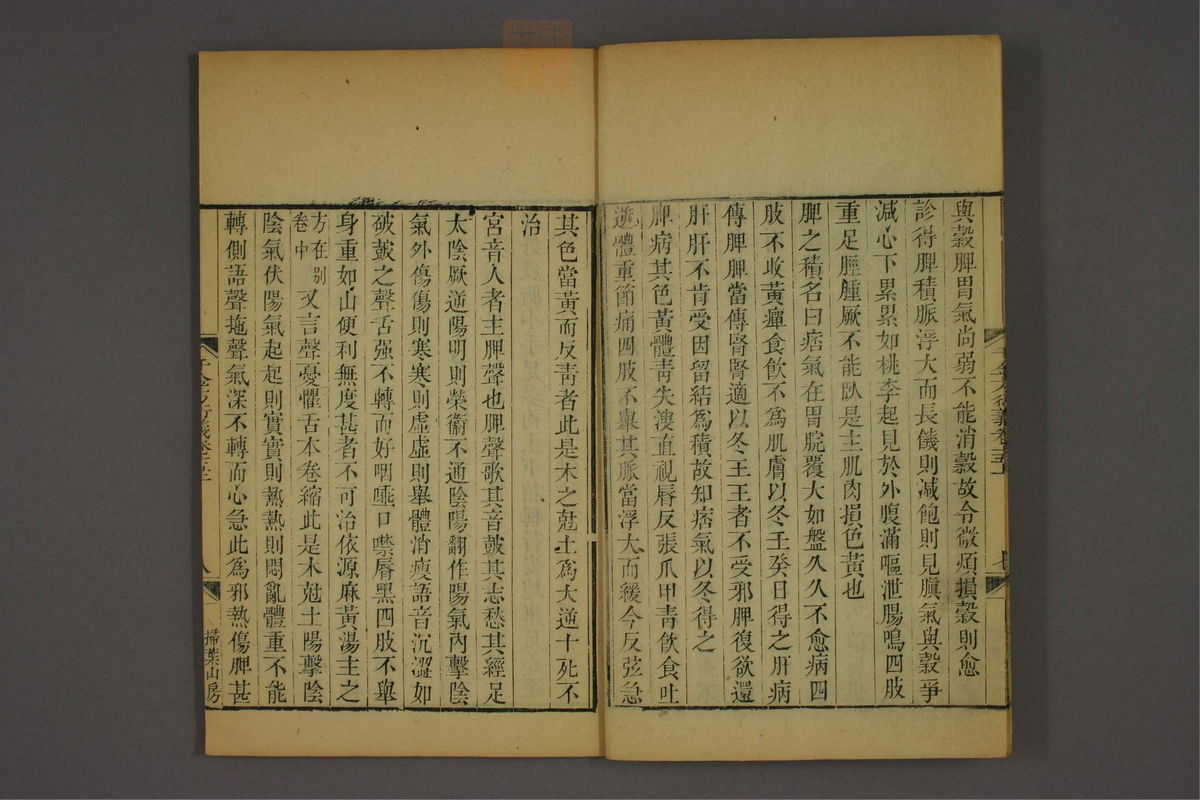 與穀脾胃氣尚弱不能消穀故令微煩損穀則愈
診得脾積脈浮大而長饑則減飽則見䐜氣與穀爭
減心下累累如桃李起見於外腹滿嘔泄腸鳴四肢
重足脛腫厥不能臥是主肌肉損色黃也
脾之積名曰痞氣在胃脘覆大如盤久久不愈病四
肢不收黃癉食飲不爲肌膚以冬壬癸日得之肝病
傳脾脾當傳腎腎適以冬王王者不受邪脾復欲還
肝肝不肯受因留結爲積故知痞氣以冬得之
脾病其色黃體靑失溲直視唇反張爪甲靑飲食吐
逆體重節痛四肢不舉其脈當浮大而緩今反弦急
其色當黃而反靑者此是木之尅土爲大逆十死不
治
宮音人者主脾聲也脾聲歌其音鼓其志愁其經足
太陰厥逆陽明則榮衞不通陰陽翻作陽氣內擊陰
氣外傷傷則寒寒則虛虛則舉體消瘦語音沉澀如
破鼓之聲舌强不轉而好咽唾口噤唇黑四肢不舉
身重如山便利無度甚者不可治依源麻黃湯主之
方在别卷中又言聲憂懼舌本卷縮此是木尅土陽擊陰
陰氣伏陽氣起起則實實則熱熱則悶亂體重不能
轉側語聲拖聲氣深不轉而心急此爲邪熱傷脾甚
掃葉山房